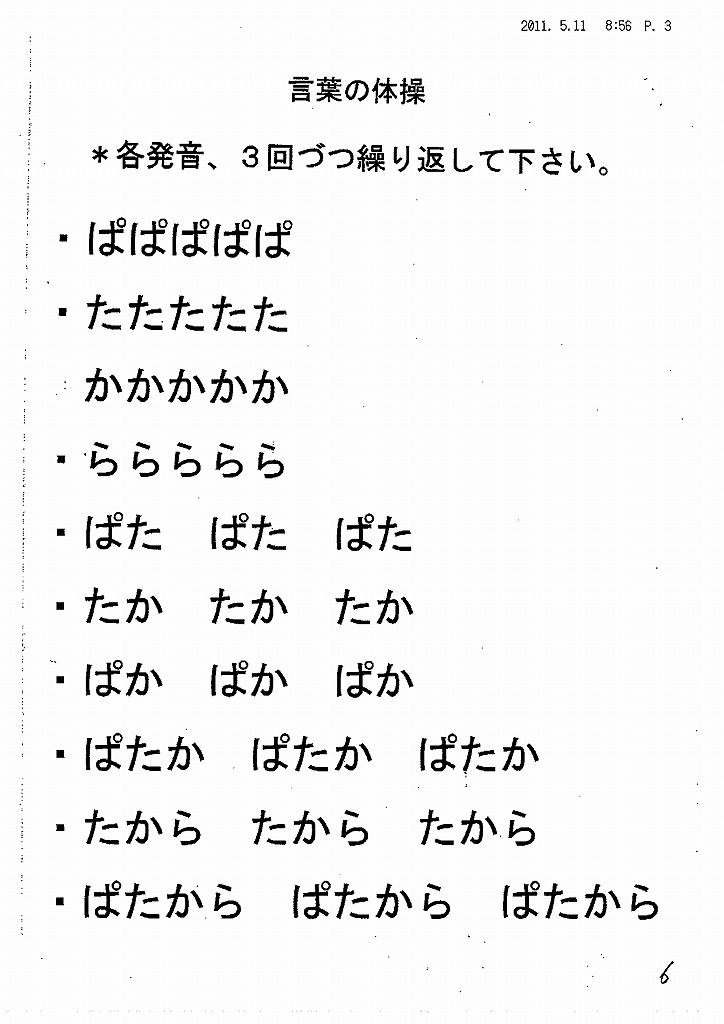 2011. 5.11 8:56 P. 3
言葉の体操
＊各発音、３回づつ繰り返して下さい。
▪ ぱぱぱぱぱ
▪ たたたたた
かかかかか
▪ ららららら
▪ ぱた　ぱた　ぱた
▪ たか　たか　たか
▪ ぱか　ぱか　ぱか
▪ ぱたか　ぱたか　ぱたか
▪ たから　たから　たから
▪ ぱたから　ぱたから　ぱたから
6